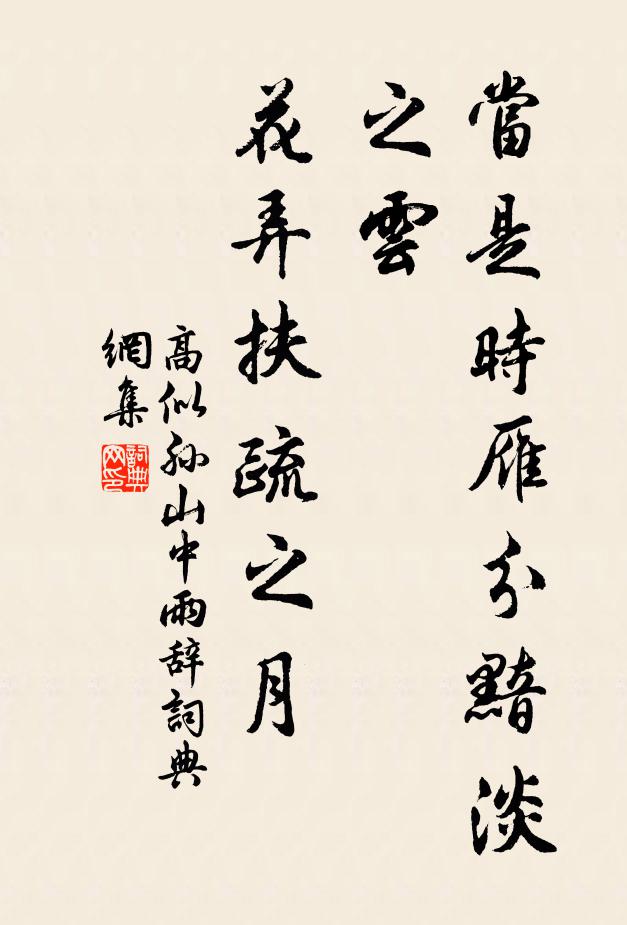 當是時雁分黯淡
之雲
花弄扶疏之月
高似孙山中雨辞詞典
網集
詞典
网印